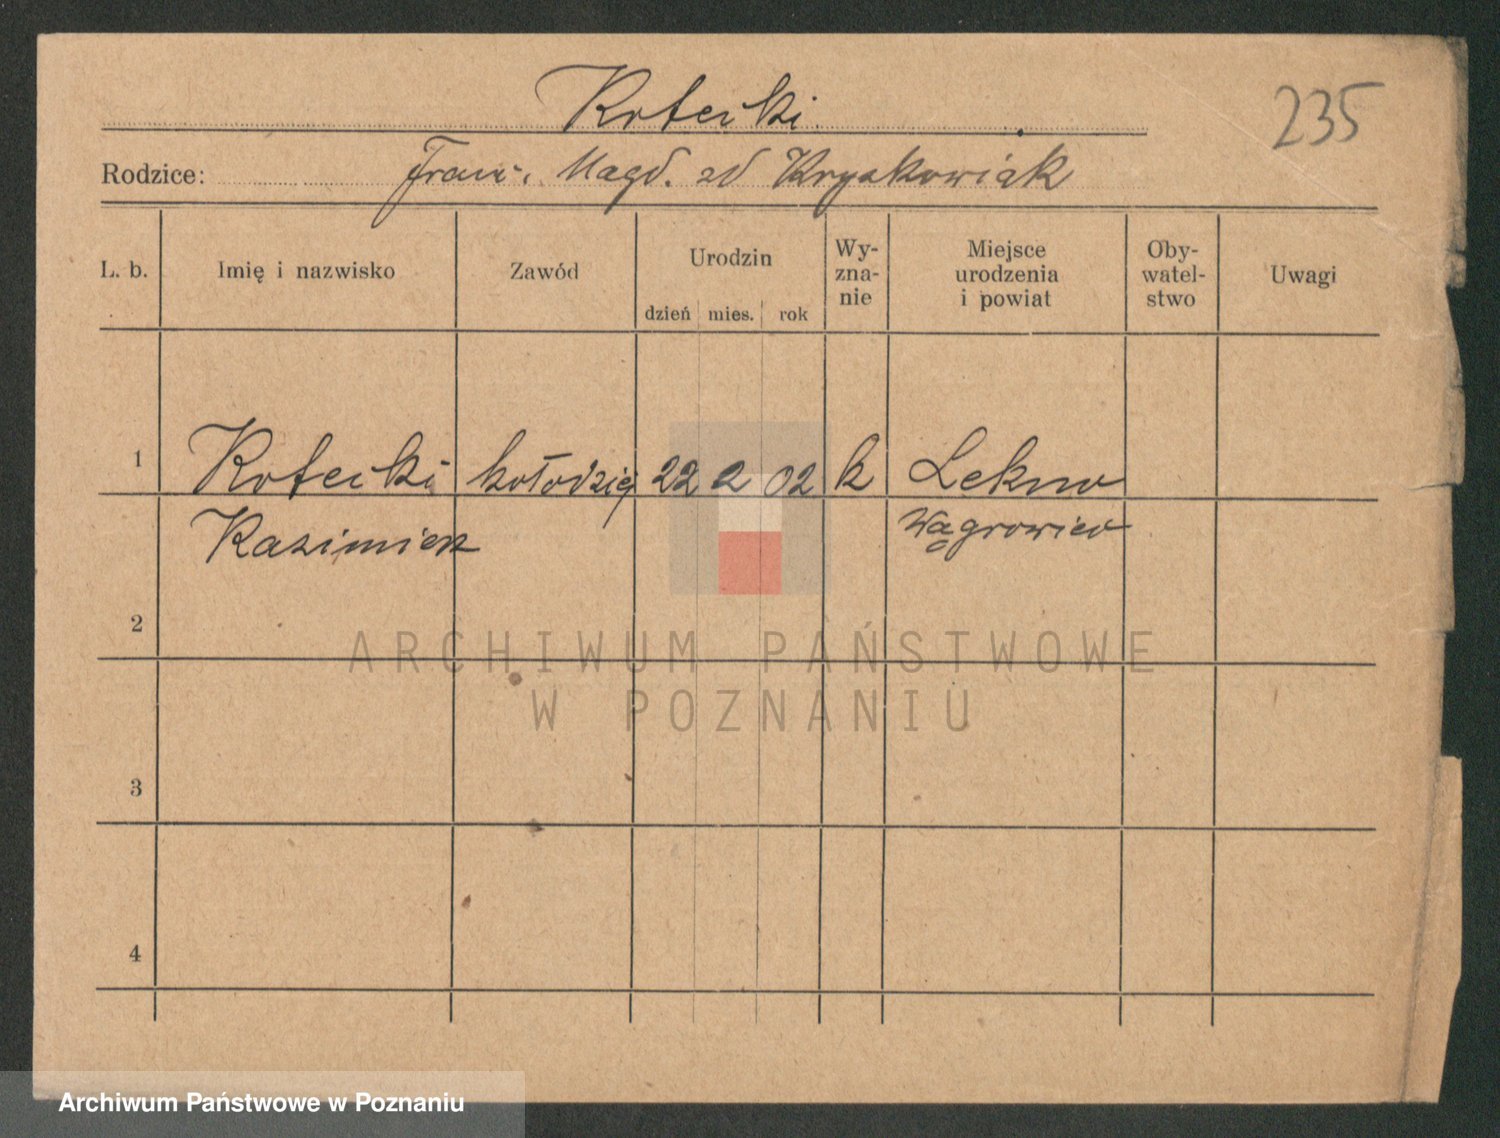 Kotecki
235
Rodzice: Franc. Magd. zd Kryskowiak
L. b. Imię i nazwisko Zawód Urodzin dzień mies. rok Wy- zna- nie Miejsce urodzenia i powiat Oby- watel- stwo Uwagi
1 Kotecki kołodziej 22 2 02 k Lekno
Kazimierz Wągrowiec
2
ARCHIWUM PAŃSTWOWE
W POZNANIU
3
4
Archiwum Państwowe w Poznaniu